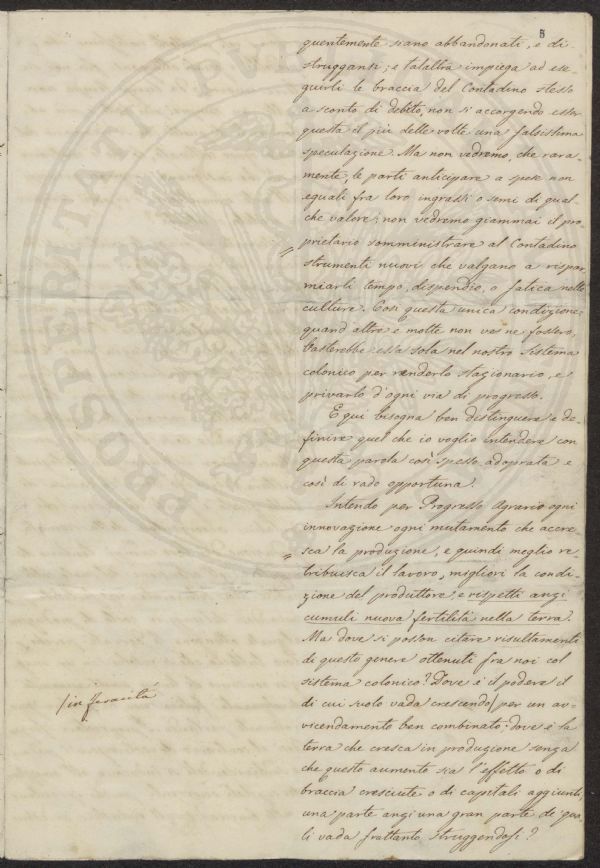 5
quentemente siano abbandonati, e di-
struggansi; e talaltra impiega ad ese-
guirli le braccia del Contadino stesso
a sconto di debito, non si accorgendo esser
questa il più delle volte una falsissima
speculazione. Ma non vedremo, che rara-
mente, le parti anticipare a spese non
eguali fra loro ingrassi o semi di qual-
che valore; non vedremo giammai il pro-
prietario somministrare al Contadino
strumenti nuovi che valgano a rispar-
miarli tempo, dispendio, o fatica nelle
culture. Così questa unica condizione
quand'altre e molte non ve ne fossero,
basterebbe essa sola nel nostro sistema
colonico per renderlo stazionario, e
privarlo d'ogni via di progresso.
E qui bisogna ben distinguere e de-
finire quel che io voglio intendere con
questa parola così spesso adoprata e
così di rado opportuna.
Intendo per Progresso Agrario ogni
innovazione ogni mutamento che accre-
sca la produzione, e quindi meglio re-
tribuisca il lavoro, migliori la condi-
zione del produttore, e rispetti anzi
cumuli nuova fertilità nella terra.
Ma dove si posson citare risultamenti
di questo genere ottenuti fra noi col
sistema colonico? Dove è il podere il
di cui suolo vada crescendo/ per un av-
/in feracità
vicendamento ben combinato: dove è la
terra che cresca in produzione senza
che questo aumento sia l'effetto o di
braccia cresciute o di capitali aggiunti,
una parte anzi una gran parte de' qua-
li vada frattanto struggendosi?
BONITATI PVB
PROSPERITATI